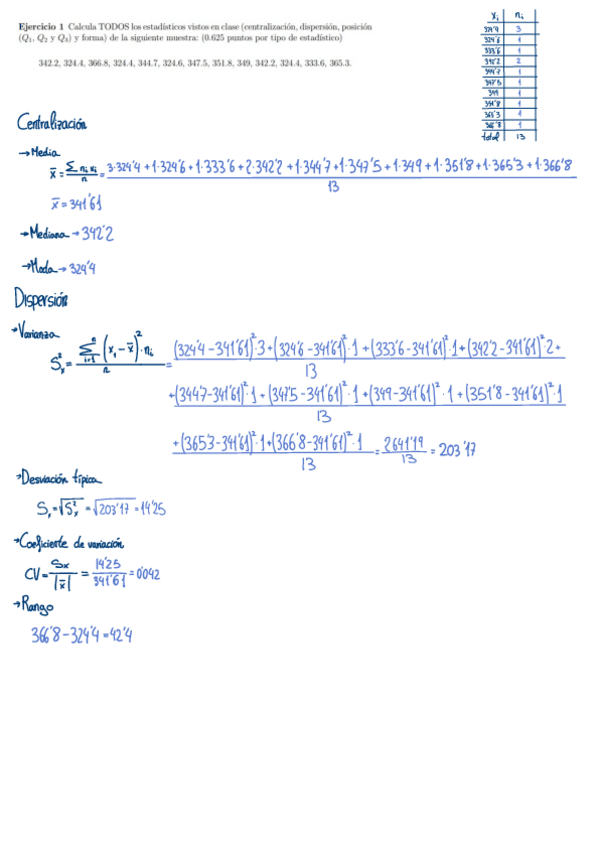 Ejercicio 1 Calcula TODOS los estadísticos vistos en clase (centralización, dispersión, posición
(Q₁, Q₂ y Q₃) y forma) de la siguiente muestra: (0.625 puntos por tipo de estadístico)
342.2, 324.4, 366.8, 324.4, 344.7, 324.6, 347.5, 351.8, 349, 342.2, 324.4, 333.6, 365.3.
xᵢ nᵢ
324'4 3
324'6 1
333'6 1
342'2 2
344'7 1
347'5 1
349 1
351'8 1
365'3 1
366'8 1
total 13
Centralización
→ Media
x̄ = Σ nᵢ xᵢ / n = 3·324'4 + 1·324'6 + 1·333'6 + 2·342'2 + 1·344'7 + 1·347'5 + 1·349 + 1·351'8 + 1·365'3 + 1·366'8 / 13
x̄ = 341'61
→ Mediana → 342'2
→ Moda → 324'4
Dispersión
→ Varianza
S²ₓ = Σⁿᵢ₌₁ (xᵢ - x̄)² · nᵢ / n = (324'4 - 341'61)²·3 + (324'6 - 341'61)²·1 + (333'6 - 341'61)²·1 + (342'2 - 341'61)²·2 + / 13
+ (344'7 - 341'61)²·1 + (347'5 - 341'61)²·1 + (349 - 341'61)²·1 + (351'8 - 341'61)²·1 / 13
+ (365'3 - 341'61)²·1 + (366'8 - 341'61)²·1 / 13 = 2641'19 / 13 = 203'17
→ Desviación típica
Sₓ = √S²ₓ = √203'17 = 14'25
→ Coeficiente de variación
CV = Sx / |x̄| = 14'25 / 341'61 = 0'042
→ Rango
366'8 - 324'4 = 42'4